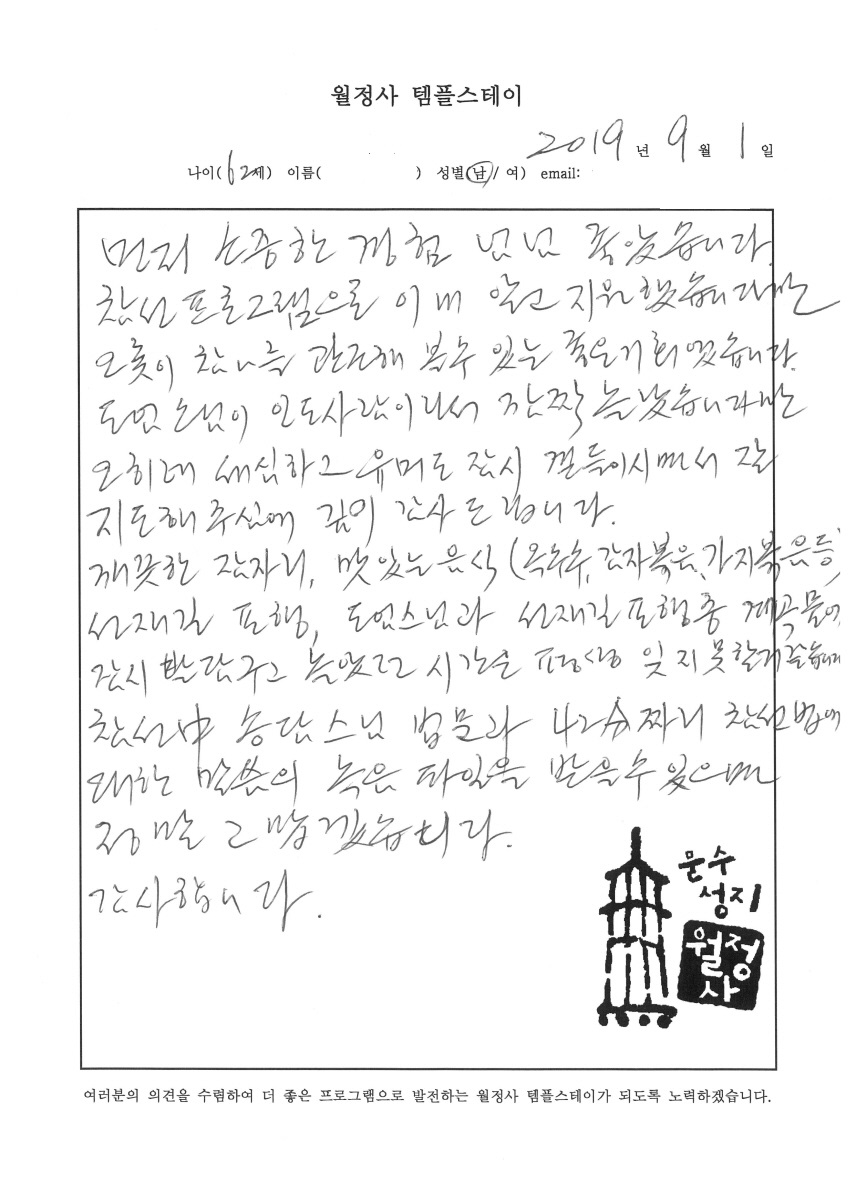 월정사 템플스테이
2019 년 9 월 1 일
나이(62세) 이름( ) 성별(남/ 여) email:
먼저 소중한 경험 넘넘 좋았습니다.
참선프로그램으로 이미 알고 지원했습니다만
오롯이 참나를 관조해 볼수 있는 좋은기회였습니다.
도언스님이 인도사람이라서 깜짝 놀랐습니다만
오히려 세심하고 유머도 잠시 곁들이시면서 잘
지도해주심에 깊이 감사드립니다.
깨끗한 잠자리, 맛있는음식(옥수수, 감자볶음, 가지볶음등)
선재길 포행, 도언스님과 선재길포행중 계곡물에
잠시 발담구고 놀았던 시간은 평생 잊지못할거 같습니다
참선中 송담스님 법문과 42分짜리 참선법에
대한 말씀의 녹음 파일을 받을수 있으면
정말 고맙겠습니다.
감사합니다.
문수
성지
월정
사
여러분의 의견을 수렴하여 더 좋은 프로그램으로 발전하는 월정사 템플스테이가 되도록 노력하겠습니다.